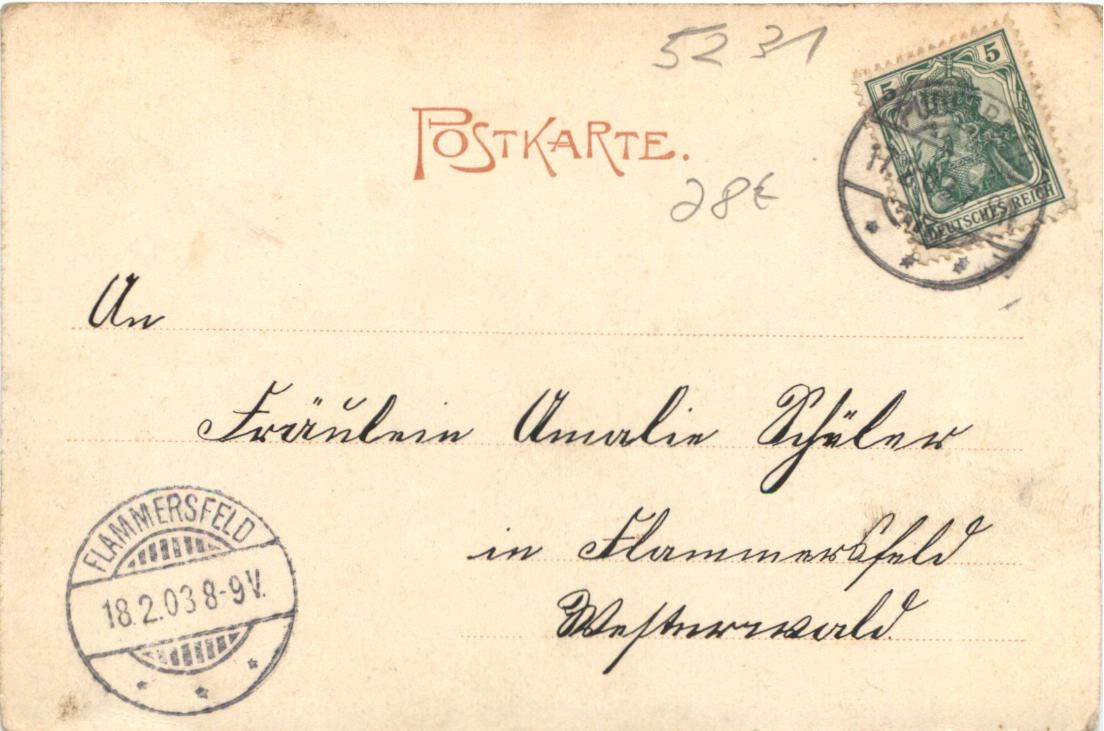 52 31
POSTKARTE.
28€
5 5
DEUTSCHES REICH
An
Fräulein Amalie Schüler
in Flammersfeld
Westerwald.
FLAMMERSFELD
18.2.03 8-9V.